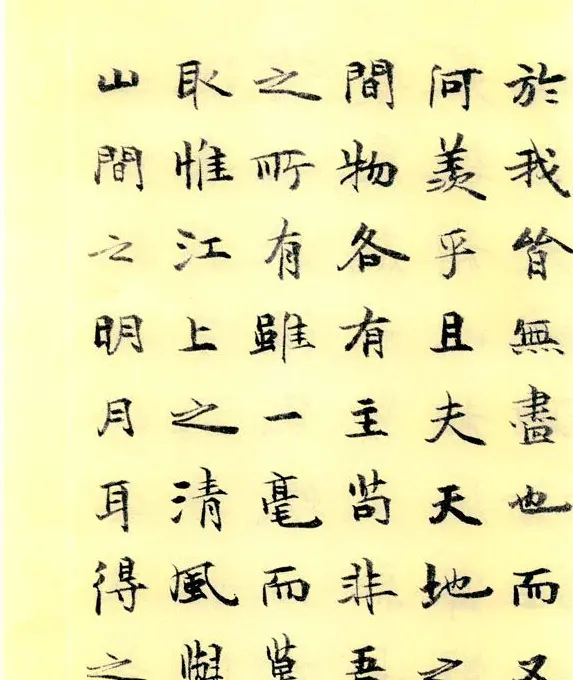 於我皆無盡也而又
何羨乎且夫天地之
間物各有主苟非吾
之所有雖一毫而莫
取惟江上之清風與
山間之明月耳得之